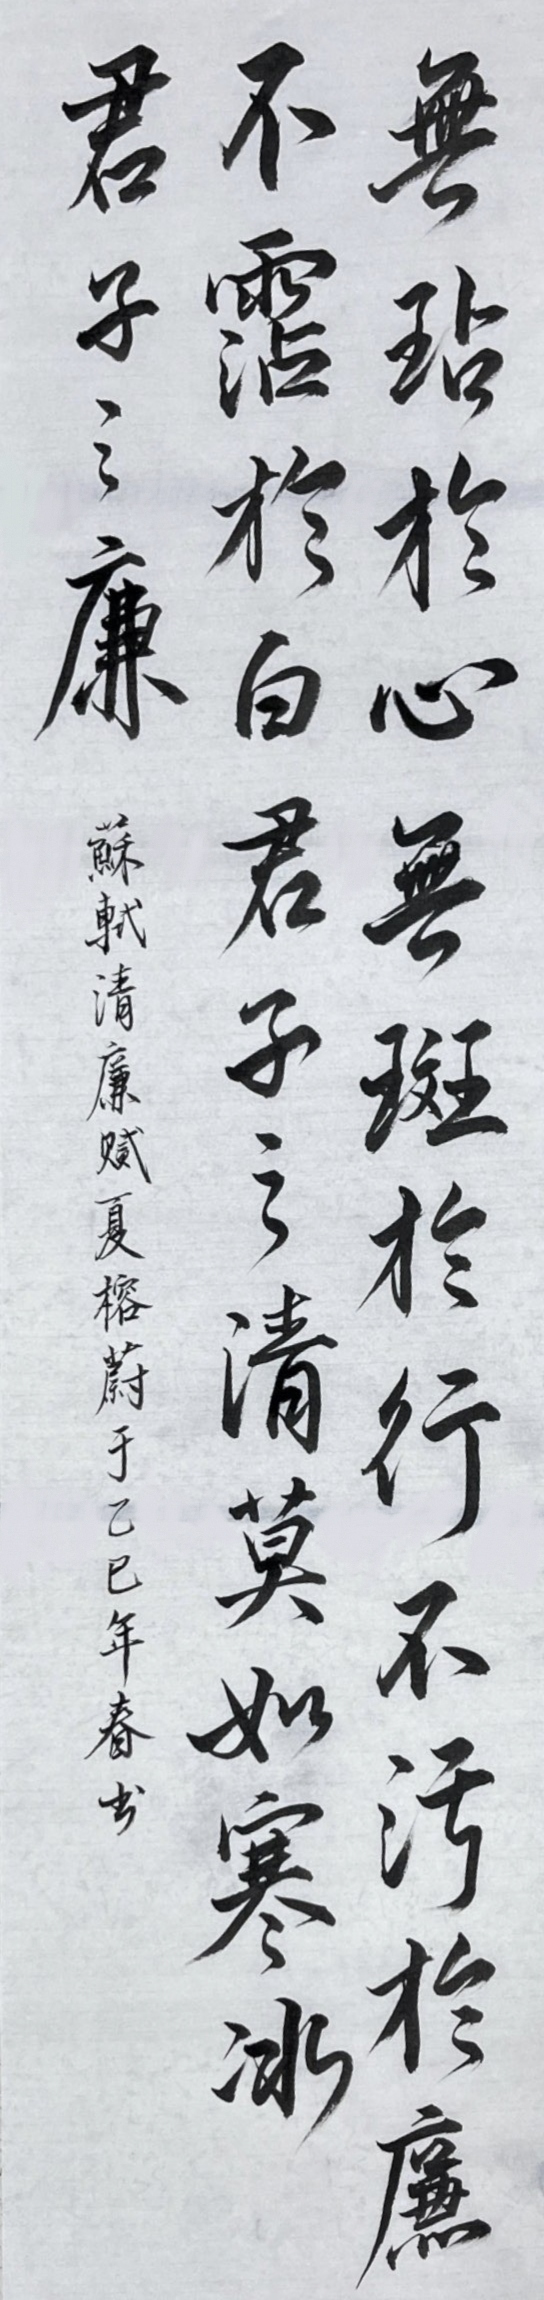 無玷於心無斑於行不污於廉
不霑於白君子之清莫如寒冰
君子之廉
蘇軾清廉赋夏榕蔚于乙巳年春书